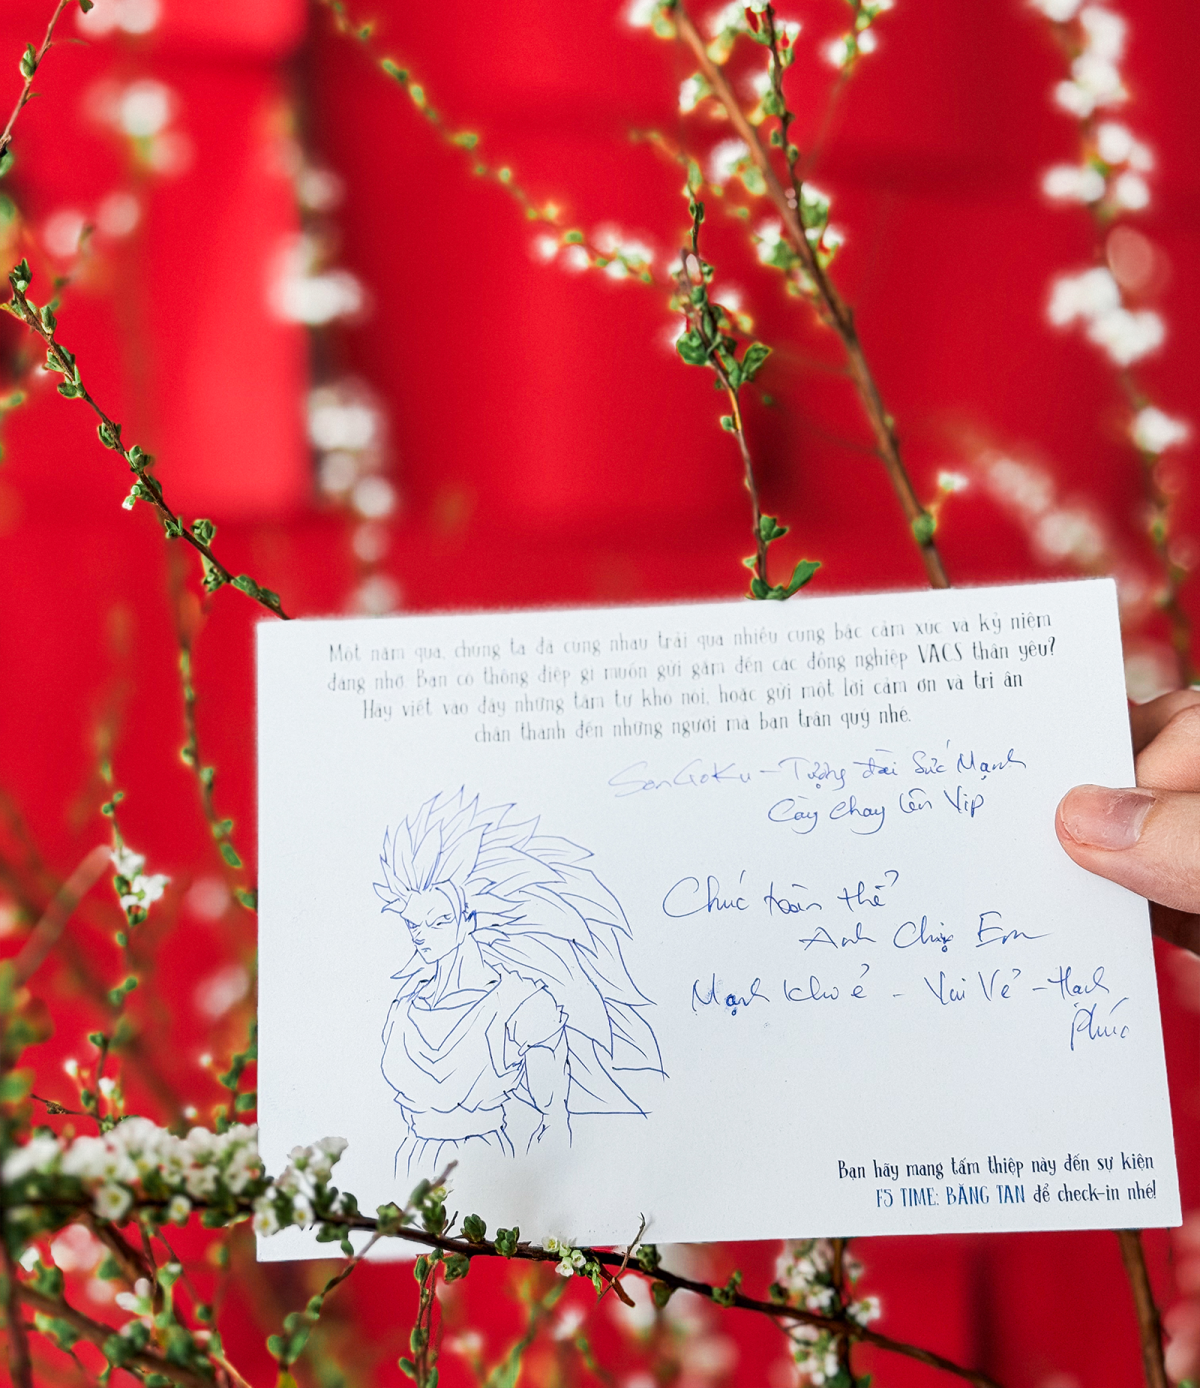 Một năm qua, chúng ta đã cùng nhau trải qua nhiều cung bậc cảm xúc và kỷ niệm
đáng nhớ. Bạn có thông điệp gì muốn gửi gắm đến các đồng nghiệp VACS thân yêu?
Hãy viết vào đây những tâm tư khó nói, hoặc gửi một lời cảm ơn và tri ân
chân thành đến những người mà bạn trân quý nhé.
SonGoKu - Tượng đài Sức Mạnh
Cày chay lên Vip
Chúc toàn thể
Anh Chị Em
Mạnh khoẻ - Vui Vẻ - Hạnh
Phúc
Bạn hãy mang tấm thiệp này đến sự kiện
F5 TIME: BĂNG TAN để check-in nhé!